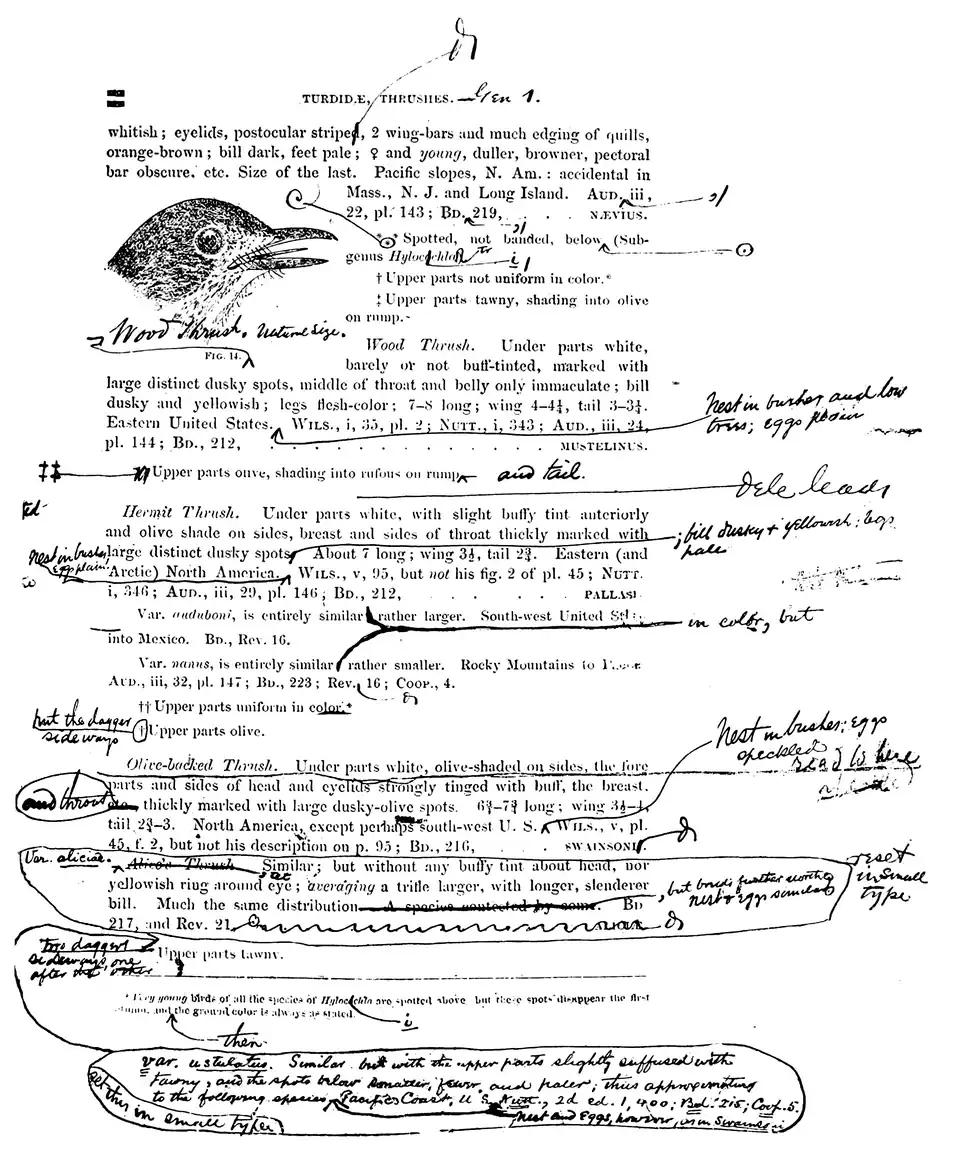 TURDIDÆ, THRUSHES. — Gen 1.
whitish; eyelids, postocular striped, 2 wing-bars and much edging of quills,
orange-brown; bill dark, feet pale; ♀ and young, duller, browner, pectoral
bar obscure, etc. Size of the last. Pacific slopes, N. Am.: accidental in
Mass., N. J. and Long Island. AUD. iii,
22, pl. 143; BD. 219, . . . NÆVIUS.
* Spotted, not banded, below (Sub-
genus
† Upper parts not uniform in color.*
‡ Upper parts tawny, shading into olive
on rump.
Wood Thrush. Natural size.
FIG. 14.
Wood Thrush. Under parts white,
barely or not buff-tinted, marked with
large distinct dusky spots, middle of throat and belly only immaculate; bill
dusky and yellowish; legs flesh-color; 7–8 long; wing 4–4¼, tail 3–3¼.
Nest in bushes and low
trees; eggs plain
Eastern United States. WILS., i, 35, pl. 2; NUTT., i, 343; AUD., iii, 24,
pl. 144; BD., 212, . . . . . . . . . . . . MUSTELINUS.
‡‡ Upper parts olive, shading into rufous on rump and tail.
dele leads
Hermit Thrush. Under parts white, with slight buffy tint anteriorly
and olive shade on sides, breast and sides of throat thickly marked with
; bill dusky & yellowish; legs
pale
large distinct dusky spots. About 7 long; wing 3½, tail 2¾. Eastern (and
Nest in bushes,
eggs plain
Arctic) North America. WILS., v, 95, but not his fig. 2 of pl. 45; NUTT.
i, 346; AUD., iii, 29, pl. 146; BD., 212, . . . . . PALLASI.
Var. auduboni, is entirely similar rather larger. South-west United
in color, but
into Mexico. BD., Rev. 16.
Var. nanus, is entirely similar rather smaller. Rocky Mountains to
AUD., iii, 32, pl. 147; BD., 223; Rev. 16; COOP., 4.
†† Upper parts uniform in color.*
put the dagger
sideways
† Upper parts olive.
Nest in bushes; eggs
speckled
Olive-backed Thrush. Under parts white, olive-shaded on sides, the fore
parts and sides of head and eyelids strongly tinged with buff, the breast.
and throat
thickly marked with large dusky-olive spots. 6¾–7¾ long; wing 3½–4,
tail 2¾–3. North America, except perhaps south-west U. S. WILS., v, pl.
45, f. 2, but not his description on p. 95; BD., 216, . . . SWAINSONI.
Var. aliciæ.
Alice's Thrush Similar; but without any buffy tint about head, nor
reset
in small
type
yellowish ring around eye; averaging a trifle larger, with longer, slenderer
bill. Much the same distribution A species contested by some. BD
but breeds further north
nest & eggs similar
217, and Rev. 21.
two daggers
sideways, one
after the other
Upper parts tawny.
* Very young birds of all the species of are spotted above but these spots disappear the first
and the ground color is always as stated.
i
then
var. ustulatus. Similar but with the upper parts slightly suffused with
tawny, and the spots below smaller, fewer and paler; thus approximating
to the following species. Pacific Coast, U S. Nutt., 2d ed. 1, 400; Bd. 215; Coop. 5.
Nest and Eggs, however, as in
set this in small type